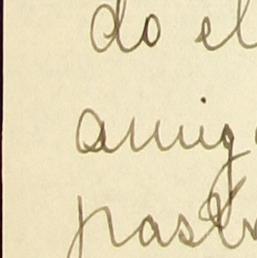 do el
amig
past